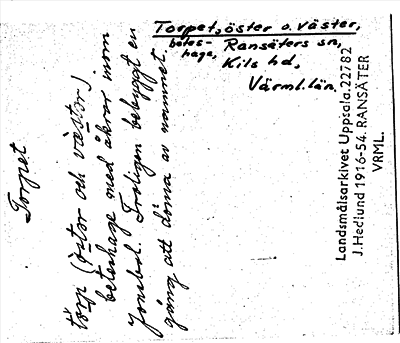 Torpet, öster o. väster,
betes-
hage,
Ransäters sn,
Kils hd,
Värml. län.
Torpet
torp (östor och västor)
beteshage med åkrar inom
Jonsbol. Troligen bebyggt en
gång att döma av namnet.
Landsmålsarkivet Uppsala. 22782
J. Hedlund 1916-54. RANSÄTER
VRML.